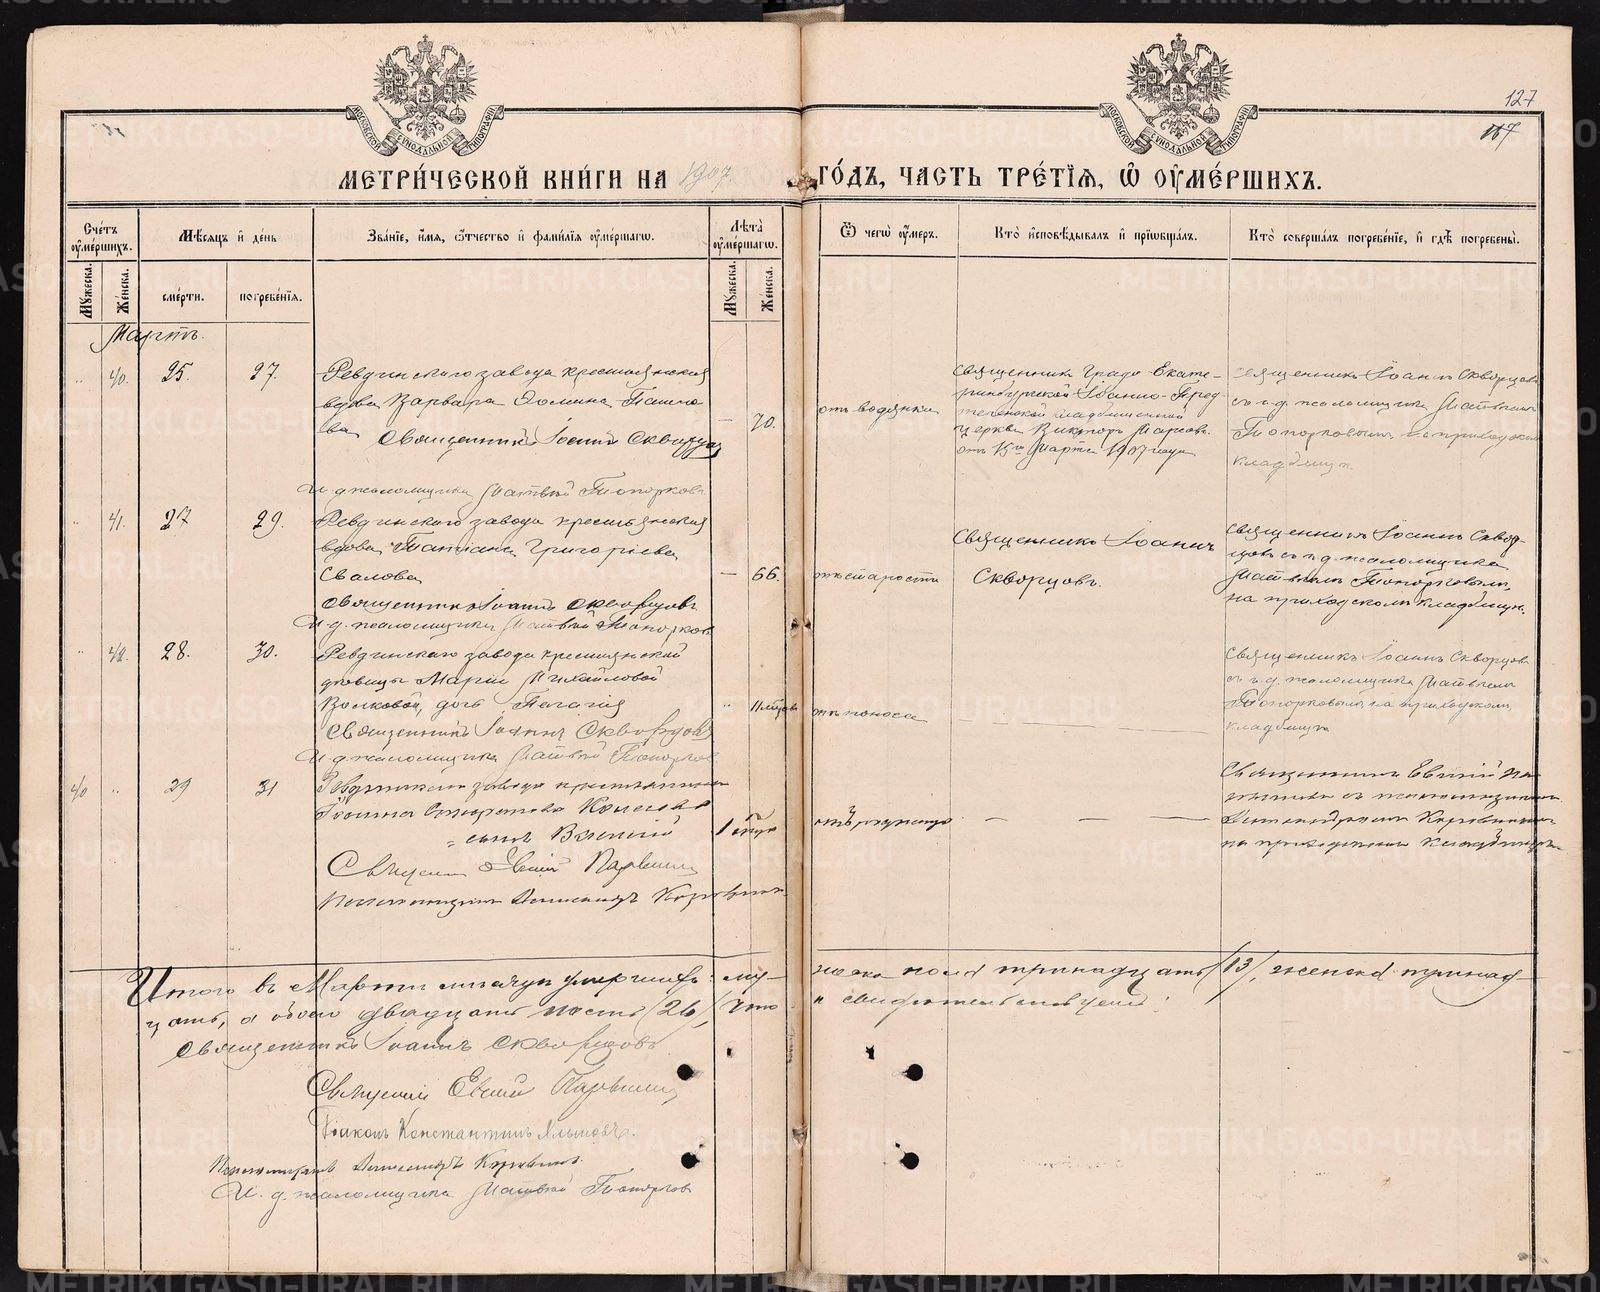 127
МОСКОВСКОЙ СѴНОДАЛЬНОЙ ТИПОГРАФІИ
МОСКОВСКОЙ СѴНОДАЛЬНОЙ ТИПОГРАФІИ
МЕТРИ́ЧЕСКОЙ КНИ́ГИ НА 1907 ГО́ДЪ, ЧАСТЬ ТРЕ́ТІѦ, Ѡ ОУМЕ́РШИХЪ.
Сче́тъ оуме́ршихъ.
Мꙋжеска.
Женска.
Мѣсѧцъ и де́нь
сме́рти.
погребе́нїѧ.
Зва́нїе, и́мѧ, ѻ́тчество и фами́лїѧ оуме́ршагѡ.
Лѣта̀ оуме́ршагѡ.
Мꙋжеска.
Женска.
Ѿ чегѡ̀ оу́меръ.
Кто̀ и́сповѣ́дывалъ и прїѡбща́лъ.
Кто̀ соверша́лъ погребе́нїе, и гдѣ̀ погребены̀.
Мартъ.
40. 25. 27. Ревдинскаго завода крестьянская
вдова Варвара Фомина
Священникъ Іоаннъ Скворцовъ
И. д. псаломщика Матвѣй Топорковъ
70.
отъ водянки
Священникъ Градо-Екате-
ринбургской Іоанно-Пред-
теченской кладбищенской
церкви Викторъ
отъ 15го Марта 1907 года
Священникъ Іоаннъ Скворцовъ
съ и. д. псаломщика Матвѣемъ
Топорковымъ на приходскомъ
кладбищѣ.
41. 27 29. Ревдинскаго завода крестьянская
вдова Татіана Григоріева
Свалова
Священникъ Іоаннъ Скворцовъ
И. д. псаломщика Матвѣй Топорковъ
66.
отъ старости
Священникъ Іоаннъ
Скворцовъ.
Священникъ Іоаннъ Сквор-
цовъ съ и. д. псаломщика
Матвѣемъ Топорковымъ,
на приходскомъ кладбищѣ.
42. 28. 30. Ревдинскаго завода крестьянской
дѣвицы Маріи Михайловой
Волковой, дочь Пелагія
Священникъ Іоаннъ Скворцовъ
И. д. псаломщика Матвѣй Топорковъ
отъ поноса
Священникъ Іоаннъ Скворцовъ
съ и. д. псаломщика Матвѣемъ
Топорковымъ на приходскомъ
кладбищѣ
40 29 31 Ревдинскаго завода крестьянина
сынъ Василій
Священникъ Евгеній
Псаломщикъ Александръ Коровинъ
Священникъ Евгеній
съ псаломщикомъ
Александромъ Коровинымъ
на приходскомъ кладбищѣ
Итого въ Мартѣ мѣсяцѣ умершихъ: му-
жеска пола тринадцать (13), женска тринад-
цать, а обоего двадцать шесть (26), что
и свидѣтельствуемъ:
Священникъ Іоаннъ Скворцовъ
Священникъ Евгеній
Діаконъ Константинъ
Псаломщикъ Александръ Коровинъ
И. д. псаломщика Матвѣй Топорковъ
METRIKI.GASO-URAL.RU